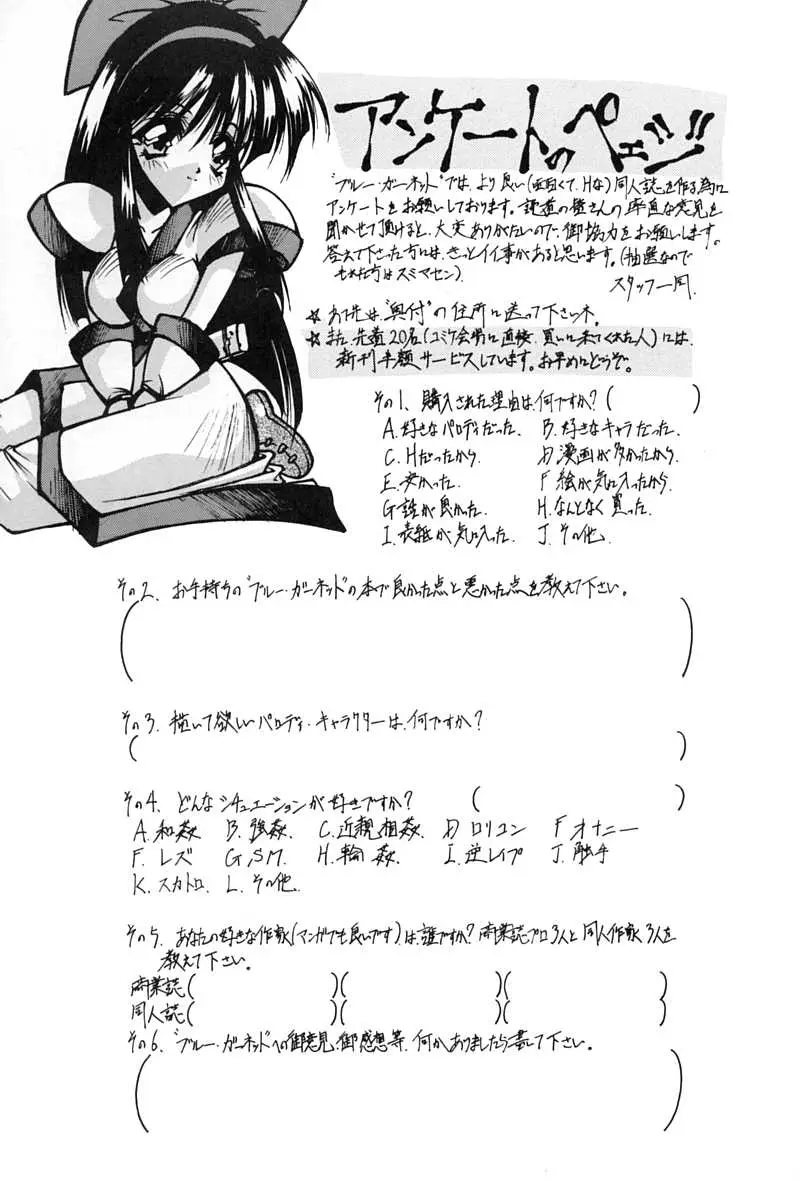 アンケートのページ!!
"ブルー・ガーネット"では、より良い(面白くて、Hな)同人誌を作る為に
アンケートをお願いしております。読者の皆さんの率直な意見を
聞かせて頂けると、大変ありがたいので、御協力をお願いします。
答えて下さった方には、きっとイイ事があると思います。(抽選なので
もれた方はスミマセン)
スタッフ一同.
☆あて先は、"奥付"の住所に送って下さいネ。
☆また、先着20名(コミケ会場に直接、買いに来てくれた人)には、
新刊半額サービスしています。お早めにどうぞ。
その1、購入された理由は、何ですか?( )
A.好きなパロディだった. B.好きなキャラだった.
C.Hだったから. D.漫画が多かったから.
E.安かった. F.絵が気に入ったから.
G.話が良かった. H.なんとなく買った.
I.表紙が気に入った. J.その他.
その2、お手持ちの"ブルー・ガーネット"の本で良かった点と悪かった点を教えて下さい。
( )
その3、描いて欲しいパロディ・キャラクターは、何ですか?
( )
その4、どんなシチュエーションが好きですか? ( )
A.和姦 B.強姦. C.近親相姦. D ロリコン F オナニー
F.レズ G.S.M. H.輪姦. I.逆レイプ J.触手
K.スカトロ. L.その他.
その5、あなたの好きな作家(マンガでも良いです)は、誰ですか?商業誌プロ3人と同人作家3人を
教えて下さい。
商業誌( )( )( )
同人誌( )( )( )
その6、"ブルー・ガーネット"への御意見、御感想等、何かありましたら書して下さい。
( )